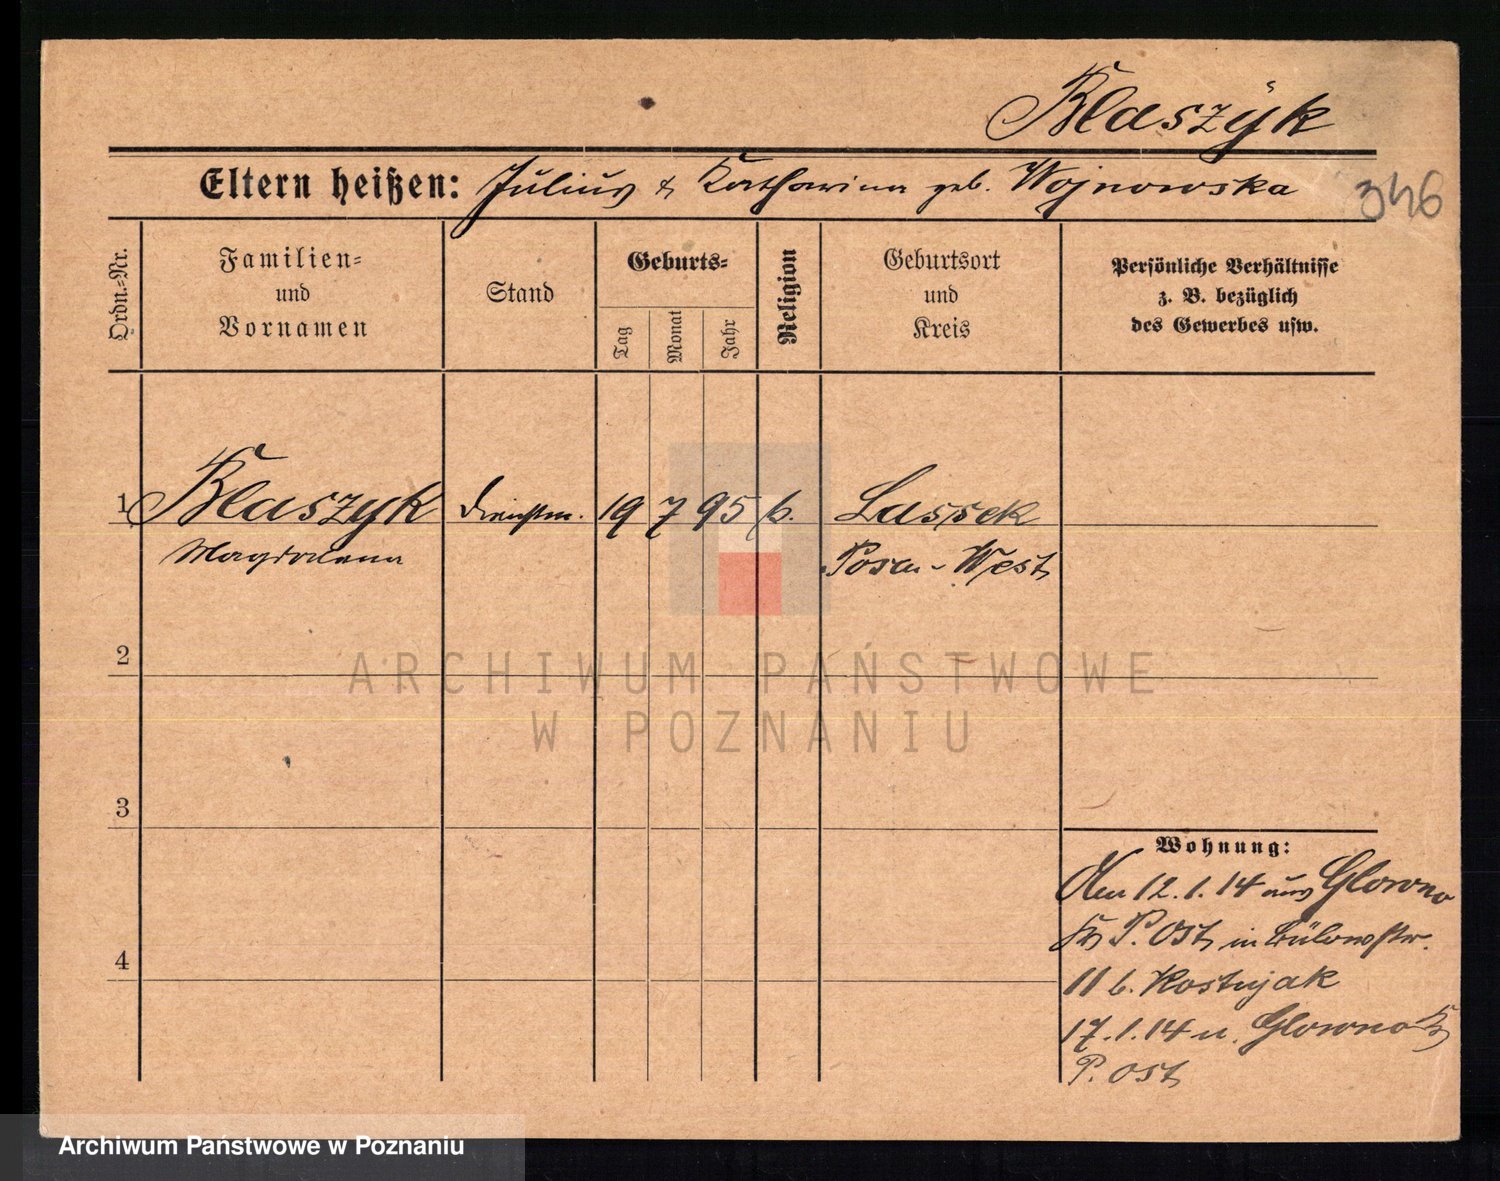 Blaszÿk
Eltern heißen: Julius & Katharina geb. Wojnowska
346
Ordn.=Nr.
Familien=
und
Vornamen
Stand
Geburts=
Tag
Monat
Jahr
Religion
Geburtsort
und
Kreis
Persönliche Verhältnisse
z. B. bezüglich
des Gewerbes usw.
1 Blaszyk Dienstm. 19 7 95 k. Lassek
Magdalena Posen-West
2
ARCHIWUM PAŃSTWOWE
W POZNANIU
3
Wohnung:
Den 12.1.14 aus Glowno
Kr P. Ost in Bülowstr.
11 b. Kostujak
17.1.14 n. Glowno Kr
4
P. Ost
Archiwum Państwowe w Poznaniu